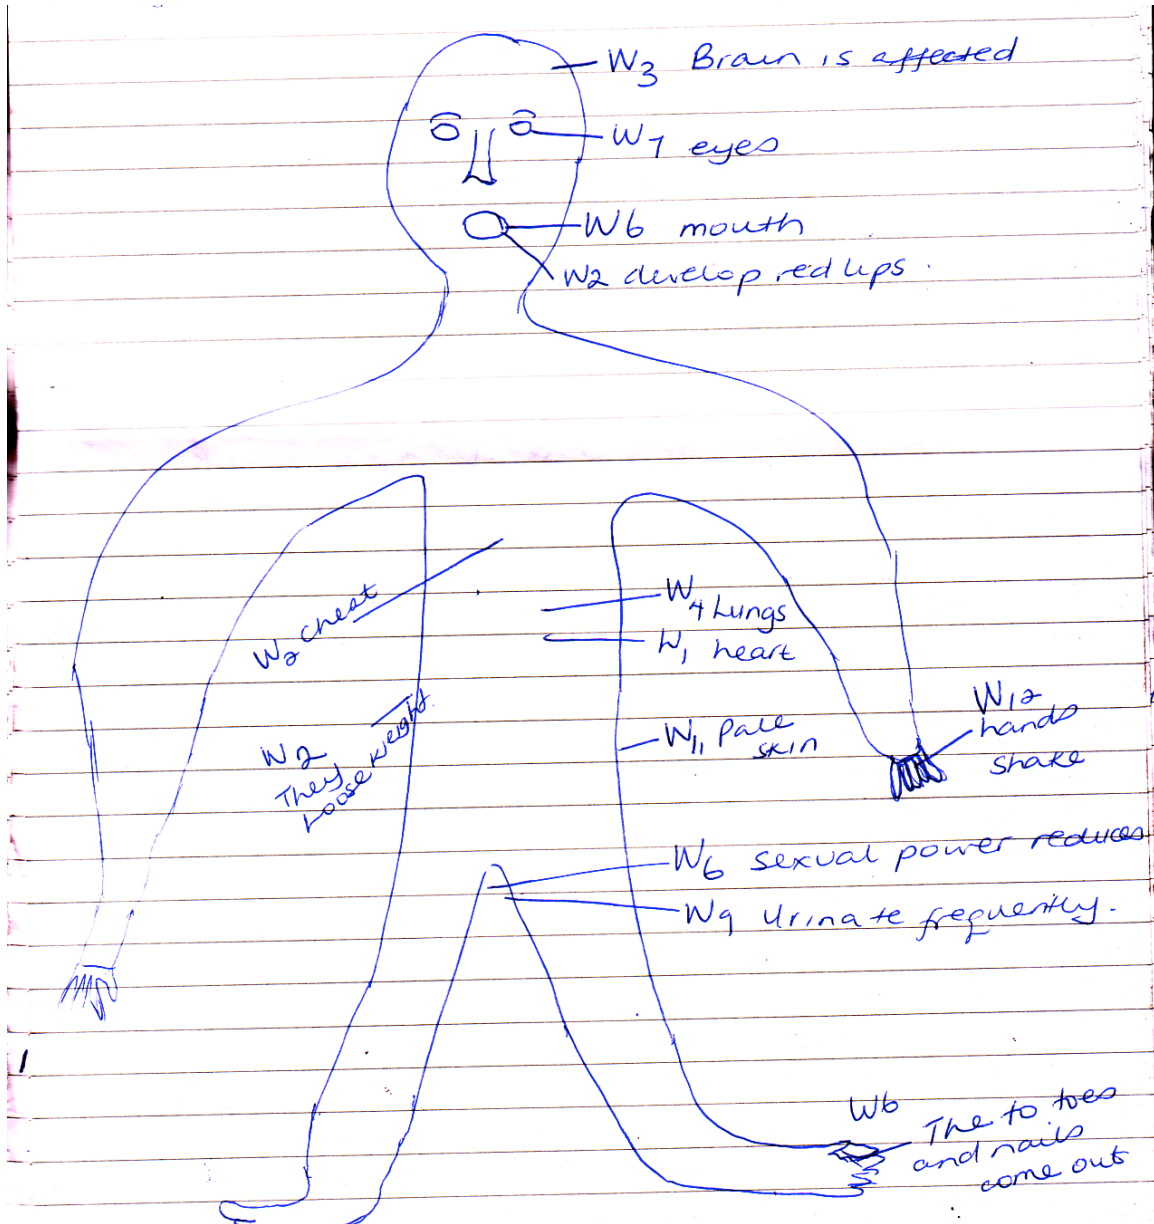 W3 Brain is affected
W7 eyes
W6 mouth
W2 develop red lips.
W2 chest
W4 Lungs
W1 heart
W2
They
Loose weight
W11 Pale
skin
W12
hands
shake
W6 sexual power reduces
W9 Urinate frequently.
W6
The to toes
and nails
come out